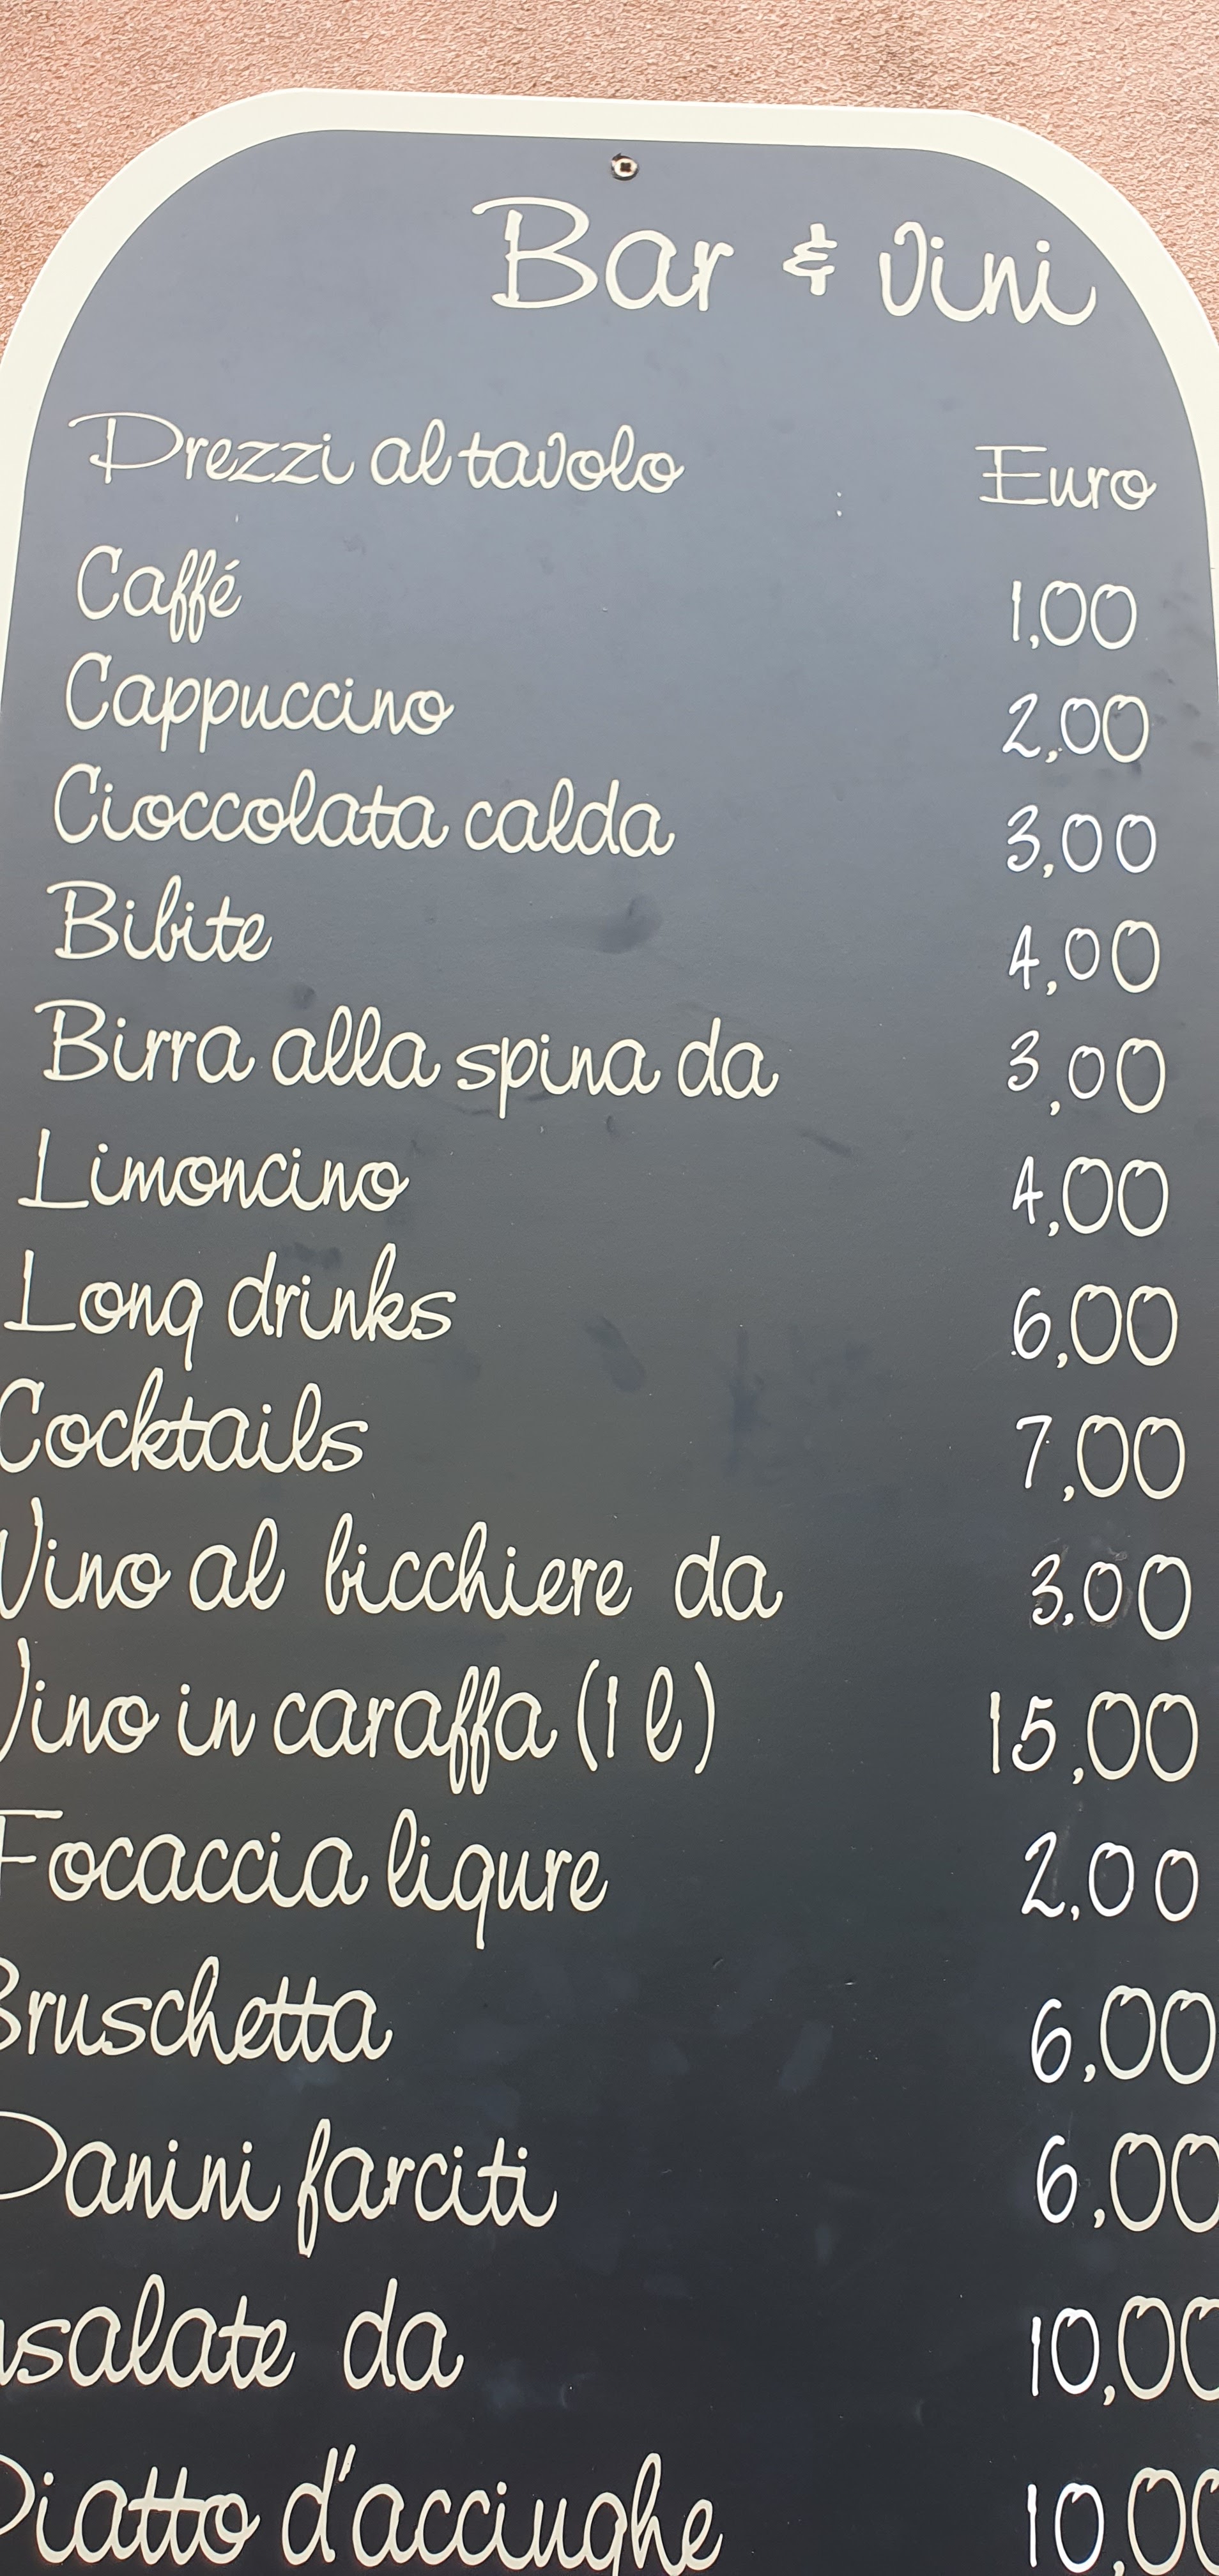 Bar & vini
Prezzi al tavolo Euro
Caffé 1,00
Cappuccino 2,00
Cioccolata calda 3,00
Bibite 4,00
Birra alla spina da 3,00
Limoncino 4,00
Long drinks 6,00
Cocktails 7,00
Vino al bicchiere da 3,00
Vino in caraffa (1 l) 15,00
Focaccia ligure 2,00
Bruschetta 6,00
Panini farciti 6,00
nsalate da 10,00
Piatto d'acciughe 10,00